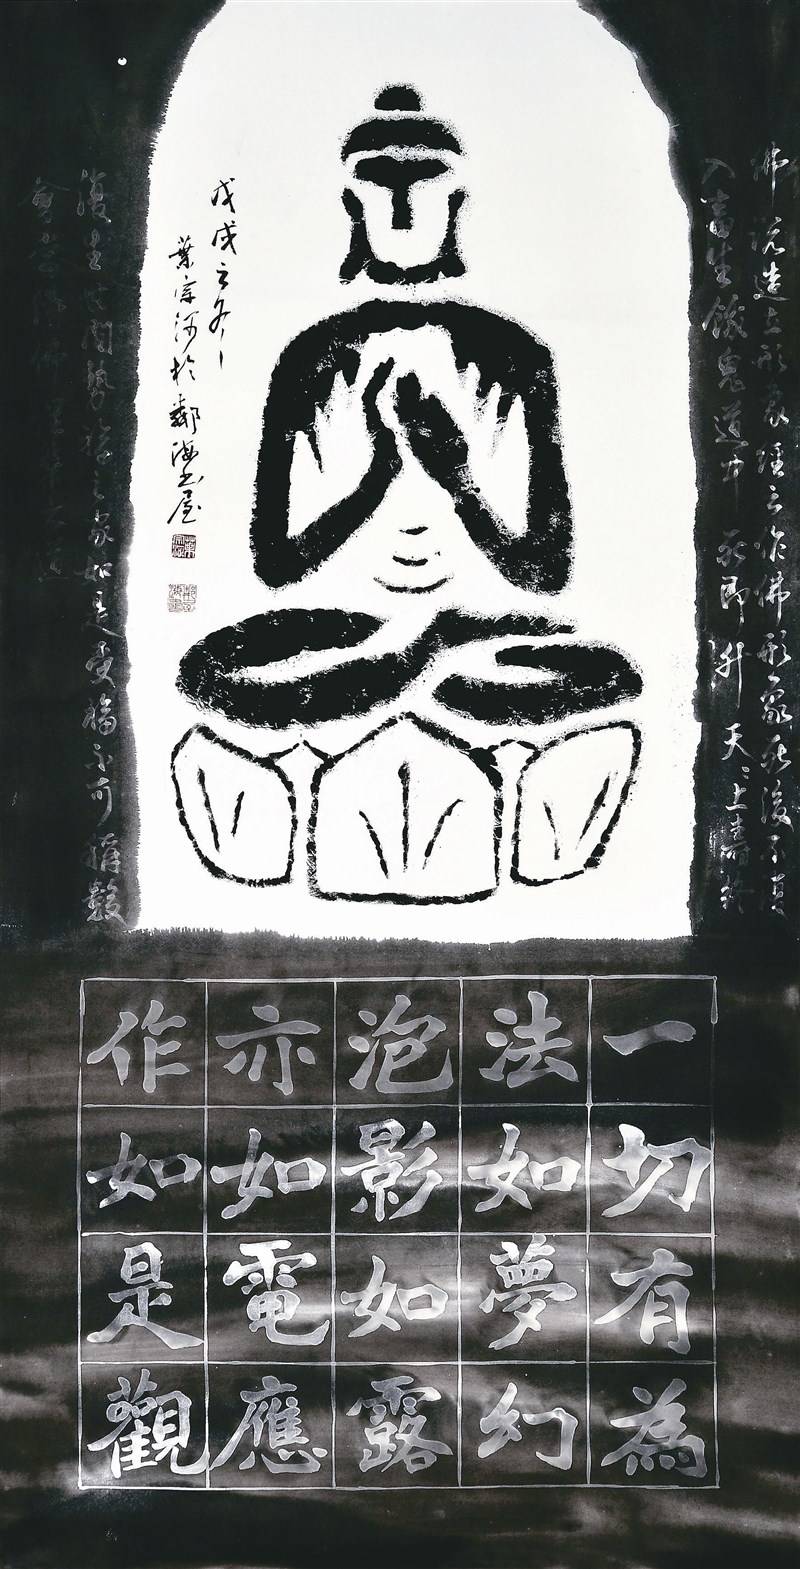 佛說造立形象經云作佛形象死後不復
入畜生餓鬼道中死即升天〻上壽終
復生世間勢族之家如是受福不可稱數
會當得佛
戊戌之冬
葉宗河於鄰海書屋
一切有為
法如夢幻
泡影如露
亦如電應
作如是觀